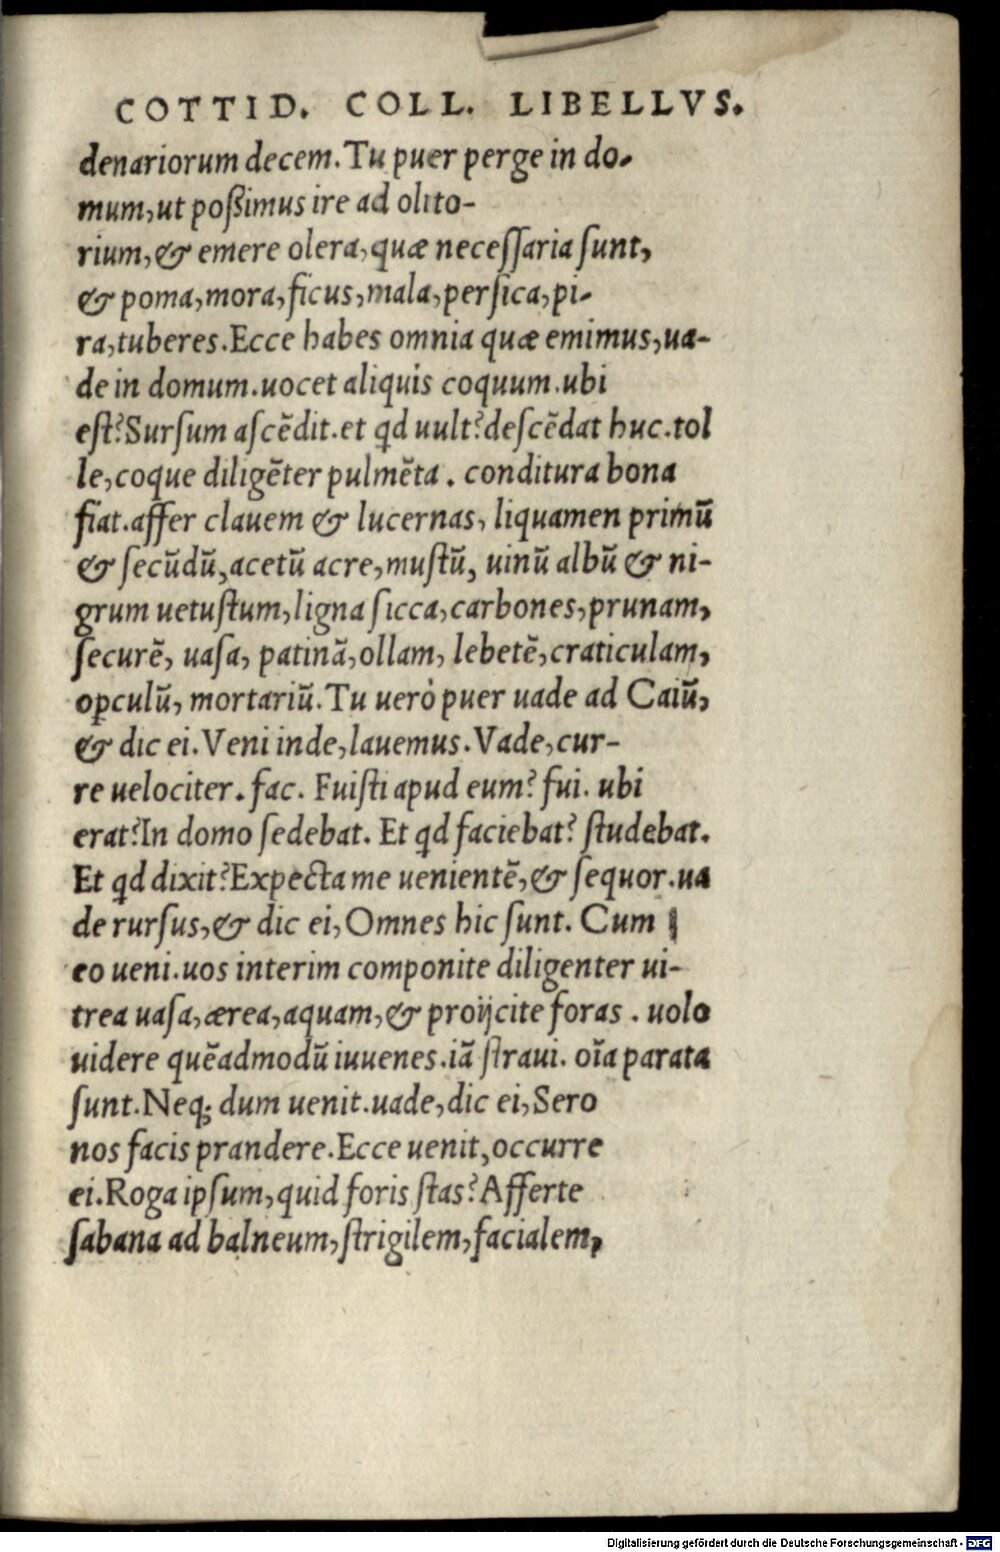 COTTID. COLL. LIBELLVS.
denariorum decem. Tu puer perge in do-
mum, ut poßimus ire ad olito-
rium, & emere olera, quæ neceſſaria ſunt,
& poma, mora, ficus, mala, perſica, pi-
ra, tuberes. Ecce habes omnia quæ emimus, ua-
de in domum. uocet aliquis coquum. ubi
eſt? Surſum aſcēdit. et qd uult? deſcēdat huc. tol
le, coque diligēter pulmēta. conditura bona
fiat. affer clauem & lucernas, liquamen primū
& ſecūdū, acetū acre, muſtū, uinū albū & ni-
grum uetuſtum, ligna ſicca, carbones, prunam,
ſecurē, uaſa, patinā, ollam, lebetē, craticulam,
oꝑculū, mortariū. Tu uerò puer uade ad Caiū,
& dic ei. Veni inde, lauemus. Vade, cur-
re uelociter. fac. Fuiſti apud eum? fui. ubi
erat? In domo ſedebat. Et qd faciebat? ſtudebat.
Et qd dixit? Expecta me uenientē, & ſequor. ua
de rurſus, & dic ei, Omnes hic ſunt. Cum
eo ueni. uos interim componite diligenter ui-
trea uaſa, ærea, aquam, & proijcite foras. uolo
uidere quēadmodū iuuenes. iā ſtraui. oīa parata
ſunt. Neq; dum uenit. uade, dic ei, Sero
nos facis prandere. Ecce uenit, occurre
ei. Roga ipſum, quid foris ſtas? Afferte
ſabana ad balneum, ſtrigilem, facialem,
Digitalisierung gefördert durch die Deutsche Forschungsgemeinschaft - DFG